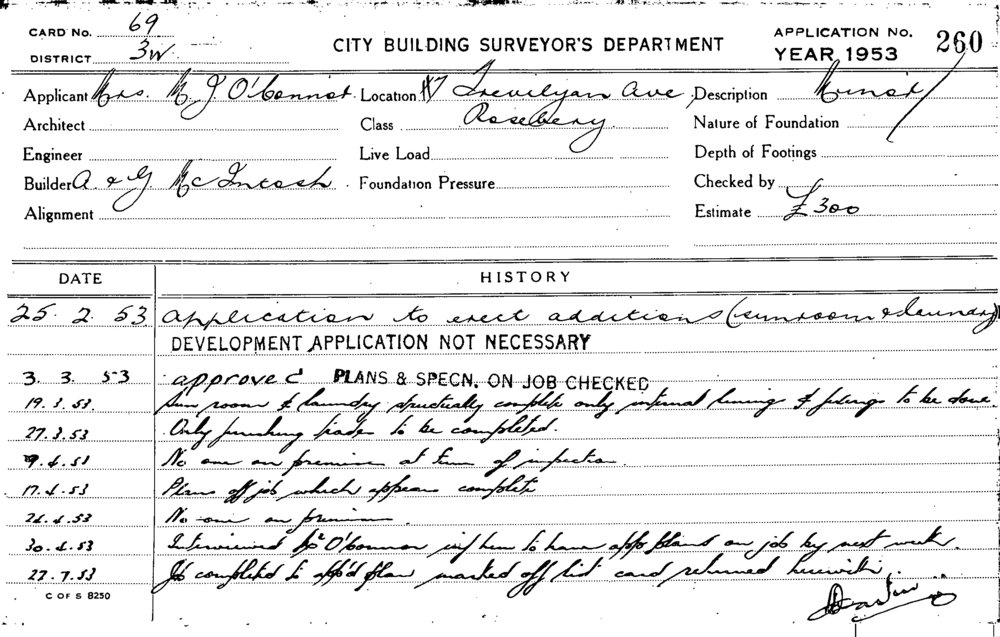 CARD No. 69
DISTRICT 3W
CITY BUILDING SURVEYOR'S DEPARTMENT
APPLICATION No. 260
YEAR 1953
Applicant Mrs. M J O'Connor Location 47 Trevilyan Ave, Description Minor
Architect Class Rosebery Nature of Foundation
Engineer Live Load Depth of Footings
Builder A & G McIntosh Foundation Pressure Checked by
Alignment Estimate £300
DATE HISTORY
25. 2. 53 Application to erect additions (sunroom & laundry)
DEVELOPMENT APPLICATION NOT NECESSARY
3. 3. 53 approved PLANS & SPECN. ON JOB CHECKED
19. 3. 53. Sun room & laundry structually complete only internal lining & fixings to be done.
27. 3. 53 Only finishing trades to be completed.
9. 4. 53 No one on premises at time of inspection.
17. 4. 53 Plans off job which appears complete
24. 4. 53 No one on premises.
30. 4. 53 Interviewed Mrs O'Connor inf her to have app plans on job by next week.
27. 7. 53 Job completed to app'd plan marked off list card returned herewith.
C OF S 8250